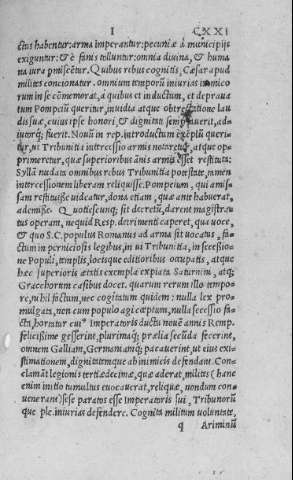 I CXXI
ctus habentur: arma imperantur: pecuniæ à municipijs
exiguntur: & è fanis tolluntur: omnia diuina, & huma
na iura pmiscētur. Quibus rebus cognitis, Cæsar apud
milites concionatur. omnium temporū iniurias inimico
rum in se cōmemorat, a quibus et inductum, et deprauа
tum Pompeiū queritur, inuidia atque obtrectatione lau
dis suæ, cuius ipse honori, & dignitati semp fauerit, ad=
iutorq; fuerit. Nouū in rep. introductum exēplū queri=
tur, ut Tribunitia intercessio armis notaretur, atque op=
primeretur, quæ superioribus ānis armis esset restituta:
Syllā nudata omnibus rebus Tribunitia potestate, tamen
intercessionem liberam reliquisse. Pompeium, qui amis=
sam restituisse uideatur, dona etiam, quæ ante habuerat,
ademisse. Quotiescunq; sit decretū, darent magistra=
tus operam, nequid Resp. detrimenti caperet, qua uoce,
& quo S.C. populus Romanus ad arma sit uocatus, fa=
ctum in perniciosis legibus, in ui Tribunitia, in secessio=
ne Populi, templis, locisque editioribus occupatis, atque
hæc superioris ætatis exempla expiata Saturnini, atq;
Gracchorum casibus docet. quarum rerum illo tempo=
re, nihil factum, nec cogitatum quidem: nulla lex pro=
mulgata, non cum populo agi cœptum, nulla secessio fa
cta, hortatur cuiꝰ Imperatoris ductu nouē annis Remp.
felicissime gesserint, plurimaq; prælia secūda fecerint,
omnem Galliam, Germaniamq; pacauerint, ut eius exi=
stimationem, dignitatemque ab inimicis defendant. Con=
clamāt legionis tertiædecimæ, quæ aderat, milites (hanc
enim initio tumultus euocauerat, reliquæ, nondum con=
uenerant) sese paratos esse Imperatoris sui, Tribunorū
que ple. iniurias defendere. Cognita militum uoluntate,
q Ariminū